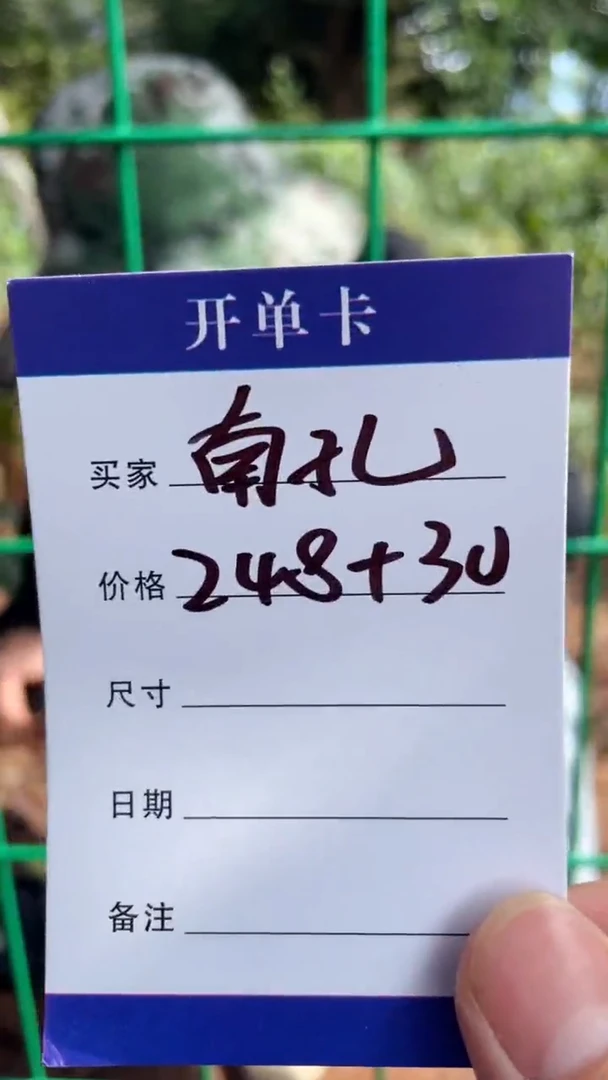 开单卡
买家 南孔
价格 248+30
尺寸
日期
备注